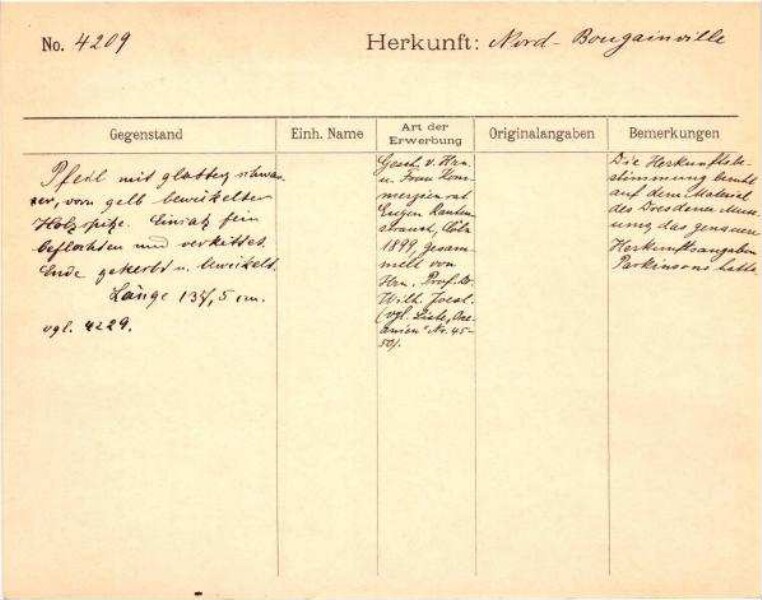 No. 4209
Herkunft: Nord-Bougainville
Gegenstand
Einh. Name
Art der
Erwerbung
Originalangaben
Bemerkungen
Pfeil mit glatter, schwar-
zer, vorn gelb bewickelter
Holzspitze. Einsatz fein
beflochten und verkittet.
Ende gekerbt u. bewickelt.
Länge 137,5 cm.
vgl. 4229.
Gesch. v. Hrn.
u. Frau Kom-
merzienrat
Eugen Rauten-
strauch, Cöln
1899, gesam-
melt von
Hrn. Prof. Dr.
Wilh. Joest.
(vgl. Liste „Oze-
anien" Nr. 45-
50).
Die Herkunftsbe-
stimmung beruht
auf dem Material
des Dresdener Muse-
ums das genauere
Herkunftsangaben
Parkinsons hatte